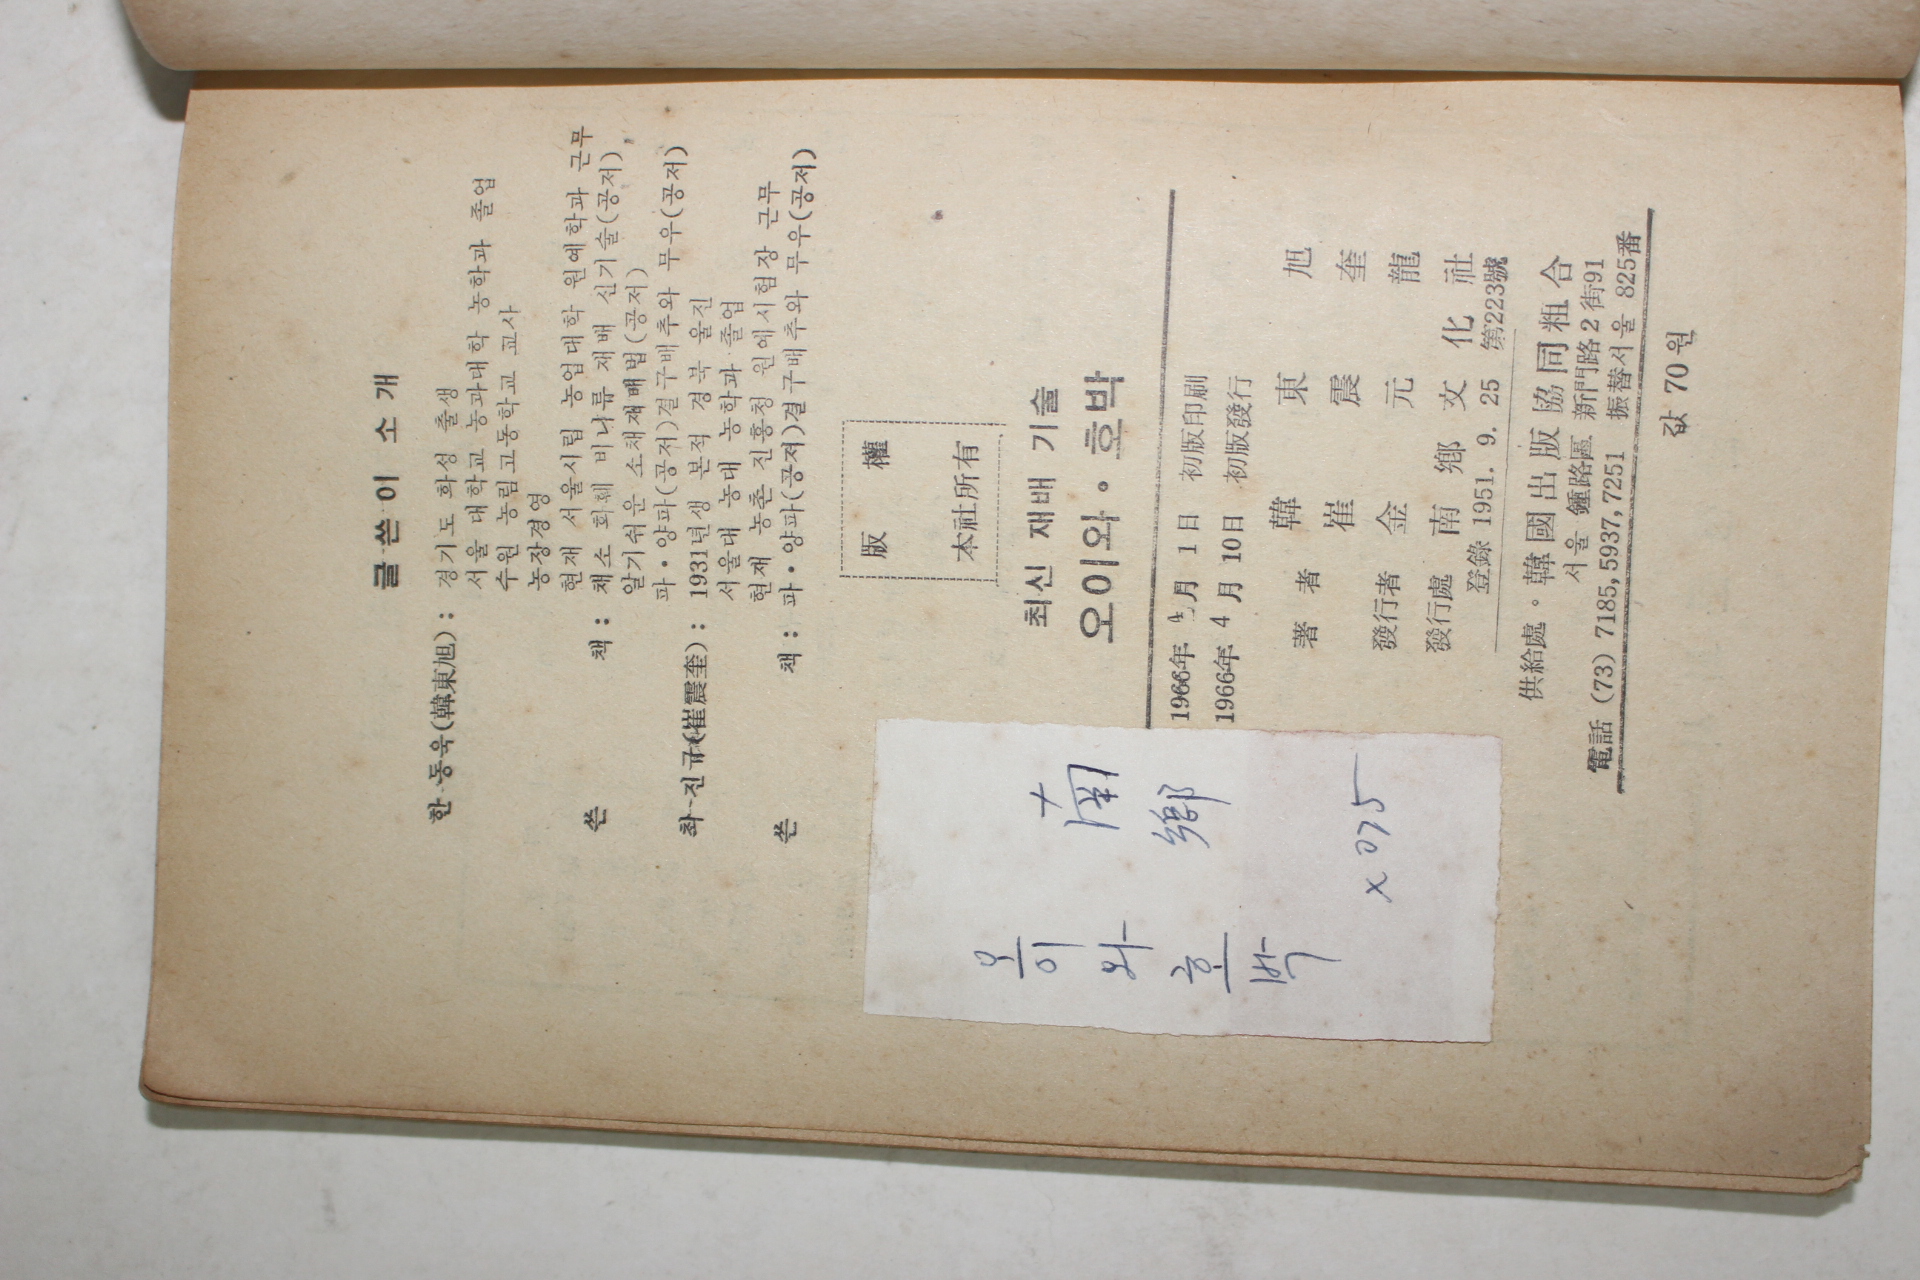 글 쓴 이 소 개
한 동욱(韓東旭) : 경기도 화성 출생
서울 대학교 농과대학 농학과 졸업
수원 농림고동학교 교사
농장경영
현재 서울시립 농업대학 원예학과 근무
쓴 책 : 채소 화훼 비니류 재배 신기술(공저),
알기쉬운 소채재배법(공저)
파・양파(공저)결구배추와 무우(공저)
최 진규(崔震奎) : 1931년생 본적 경북 울진
서울대 농대 농학과 졸업
현재 농촌 진흥청 원예시험장 근무
쓴 책 : 파・양파(공저)결구배추와 무우(공저)
版 權
本社所有
최신 재배 기술
오이와・호박
1966年 4月 1日 初版印刷
1966年 4月 10日 初版發行
著 者 韓 東 旭
崔 震 奎
發行者 金 元 龍
發行處 南 鄕 文 化 社
登錄 1951. 9. 25 第223號
供給處・韓國出版協同組合
서울 鍾路區 新門路2街91
電話 (73) 7185,5937,7251 振替서울 825番
값 70원
南鄕
오이와호박
x075